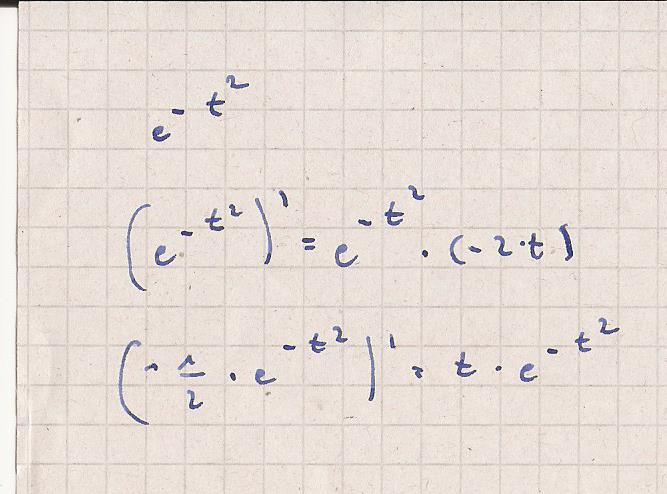 e^{-t^2}
(e^{-t^2})' = e^{-t^2} · (-2·t)
(-\frac{1}{2} · e^{-t^2})' = t · e^{-t^2}